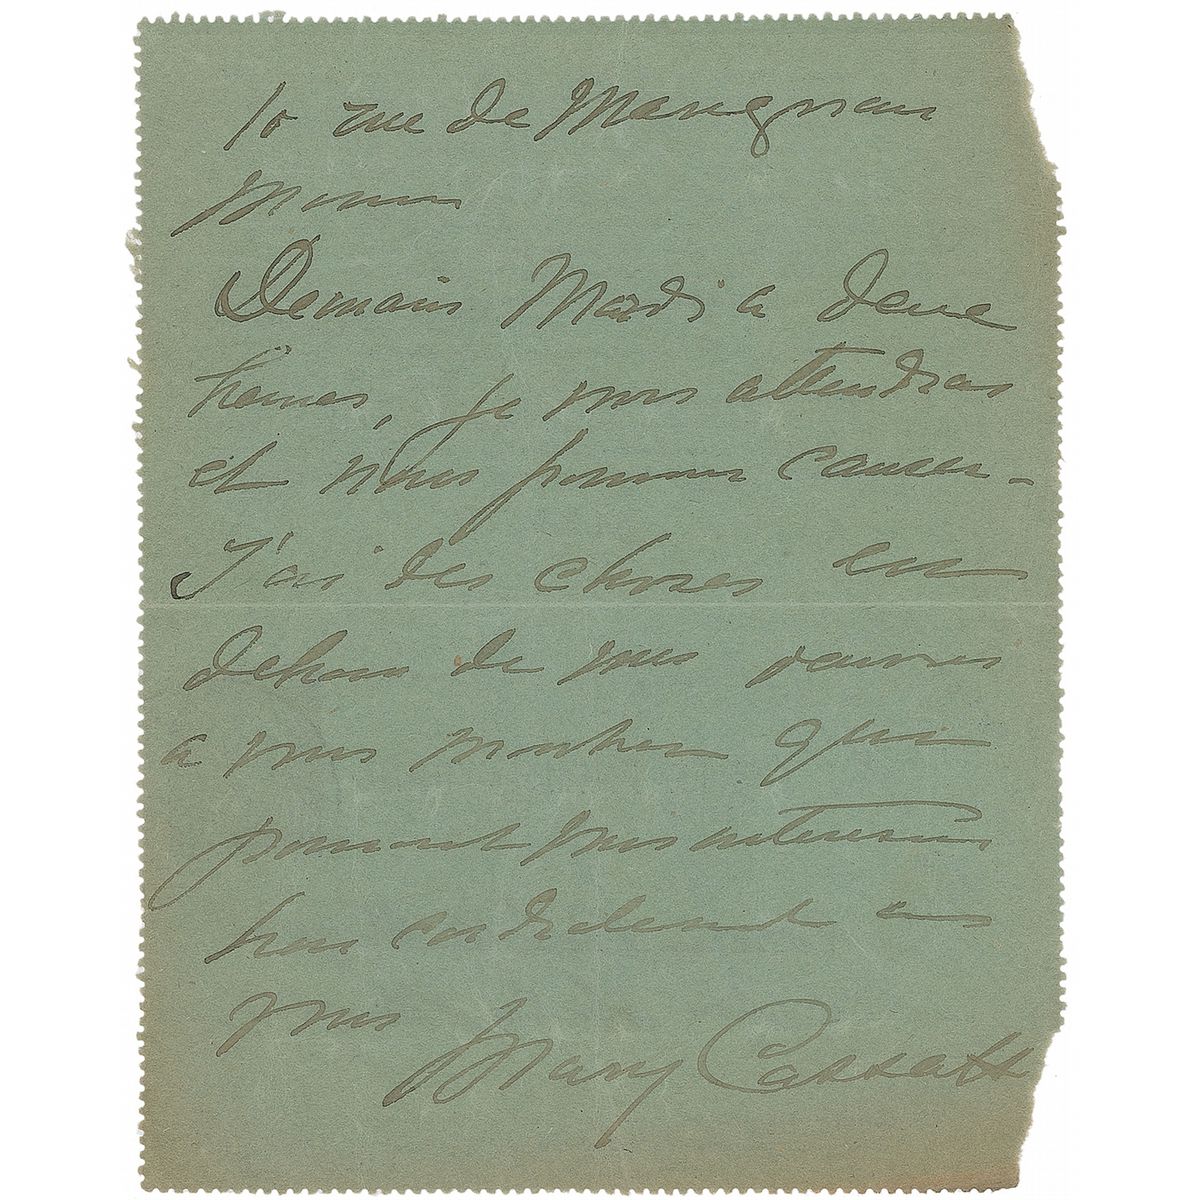 10 rue de Marignan
Demain Mardi a deux
heures, je vous attendrai
et nous pourrons causer -
J'ai des choses en
dehors de mes
a vous montrer qui
pourront vous interesser
bien cordialement a
vous Mary Cassatt